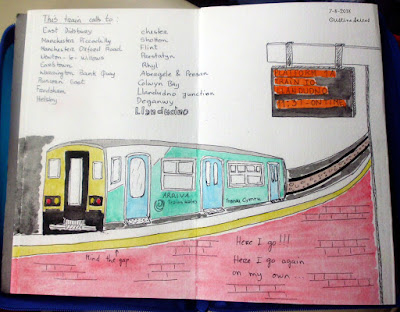 This train calls to:
East Didsbury
Manchester Piccadilly
Manchester Oxford Road
Newton-le-willows
Earlstown
Warrington Bank Quay
Runcorn East
Frodsham
Helsby
chester
Shotton
Flint
Prestatyn
Rhyl
Abergele & Pensarn
Colwyn Bay
Llandudno junction
Deganwy
Llandudno
7-6-2014
PLATFORM 14
TRAIN TO
LLANDUDNO
11:37-ON TIME
ARRIVA
Trenau Cymru
Mind the gap
Here I go!!!
Here I go again
on my own